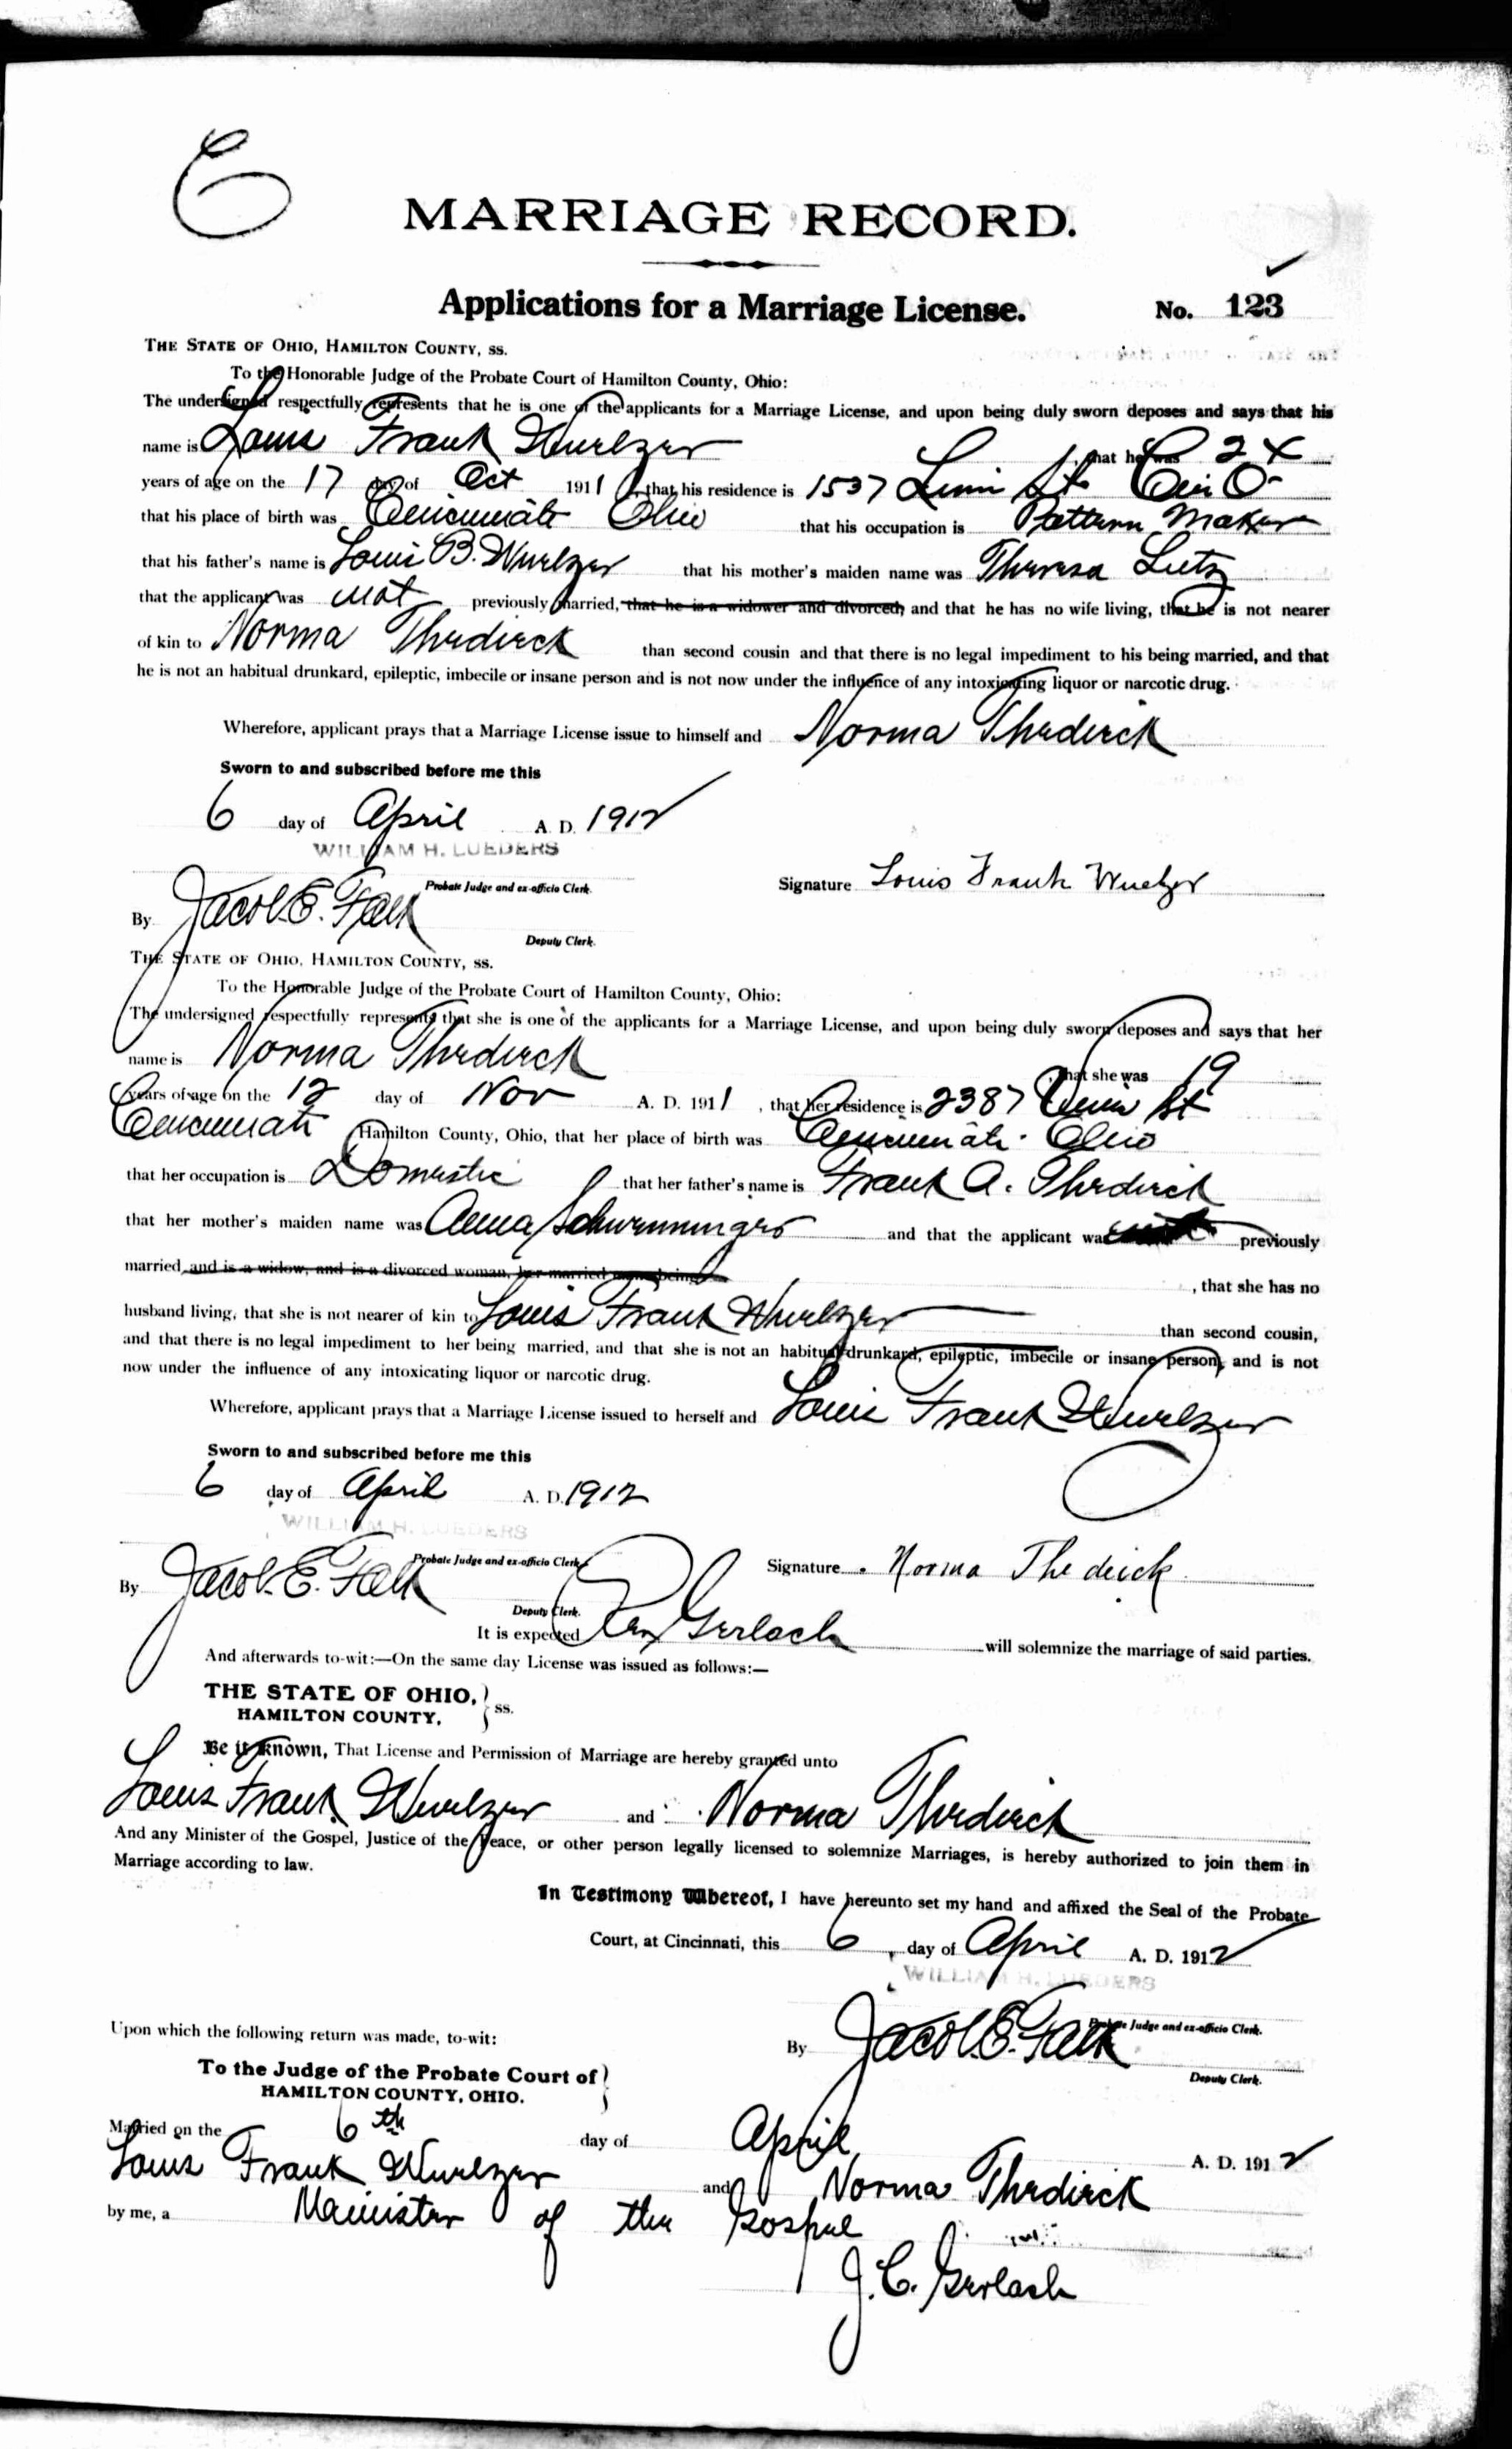 MARRIAGE RECORD.
Applications for a Marriage License. No. 123
THE STATE OF OHIO, HAMILTON COUNTY, SS.
To the Honorable Judge of the Probate Court of Hamilton County, Ohio:
The undersigned respectfully represents that he is one of the applicants for a Marriage License, and upon being duly sworn deposes and says that his
name is Louis Frank Wurlzer, that he was 24
years of age on the 17 day of Oct 1911, that his residence is 1537 St Cin O-
that his place of birth was Cincinnati Ohio that his occupation is Pattern Maker
that his father's name is Louis B. Wurlzer that his mother's maiden name was Theresa Lutz
that the applicant was not previously married, that he is a widower and divorced, and that he has no wife living, that he is not nearer
of kin to Norma Thedieck than second cousin and that there is no legal impediment to his being married, and that
he is not an habitual drunkard, epileptic, imbecile or insane person and is not now under the influence of any intoxicating liquor or narcotic drug.
Wherefore, applicant prays that a Marriage License issue to himself and Norma Thedieck
Sworn to and subscribed before me this
6 day of April A. D. 1912
WILLIAM H. LUEDERS
Probate Judge and ex-officio Clerk.
Signature Louis Frank Wuelzer
By Jacob E. Falk
Deputy Clerk.
THE STATE OF OHIO, HAMILTON COUNTY, SS.
To the Honorable Judge of the Probate Court of Hamilton County, Ohio:
The undersigned respectfully represents that she is one of the applicants for a Marriage License, and upon being duly sworn deposes and says that her
name is Norma Thedieck, that she was 19
years of age on the 12 day of Nov A. D. 1911, that her residence is 2387 St
Cincinnati Hamilton County, Ohio, that her place of birth was Cincinnati Ohio
that her occupation is Domestic that her father's name is Frank A. Thedieck
that her mother's maiden name was Anna and that the applicant was previously
married and is a widow, and is a divorced woman, her married name being, that she has no
husband living, that she is not nearer of kin to Louis Frank Wurlzer than second cousin,
and that there is no legal impediment to her being married, and that she is not an habitual drunkard, epileptic, imbecile or insane person, and is not
now under the influence of any intoxicating liquor or narcotic drug.
Wherefore, applicant prays that a Marriage License issued to herself and Louis Frank Wurlzer
Sworn to and subscribed before me this
6 day of April A. D. 1912
WILLIAM H. LUEDERS
Probate Judge and ex-officio Clerk.
Signature Norma Thedieck
By Jacob E. Falk
Deputy Clerk.
It is expected Rev Gerlach will solemnize the marriage of said parties.
And afterwards to-wit:—On the same day License was issued as follows:—
THE STATE OF OHIO, } ss.
HAMILTON COUNTY,
Be it known, That License and Permission of Marriage are hereby granted unto
Louis Frank Wurlzer and Norma Thedieck
And any Minister of the Gospel, Justice of the Peace, or other person legally licensed to solemnize Marriages, is hereby authorized to join them in
Marriage according to law.
In Testimony Whereof, I have hereunto set my hand and affixed the Seal of the Probate
Court, at Cincinnati, this 6 day of April A. D. 1912
WILLIAM H. LUEDERS
Probate Judge and ex-officio Clerk.
Upon which the following return was made, to-wit:
By Jacob E. Falk
Deputy Clerk.
To the Judge of the Probate Court of }
HAMILTON COUNTY, OHIO.
Married on the 6th day of April A. D. 1912
Louis Frank Wurlzer and Norma Thedieck
by me, a Minister of the Gospel
J. C. Gerlach